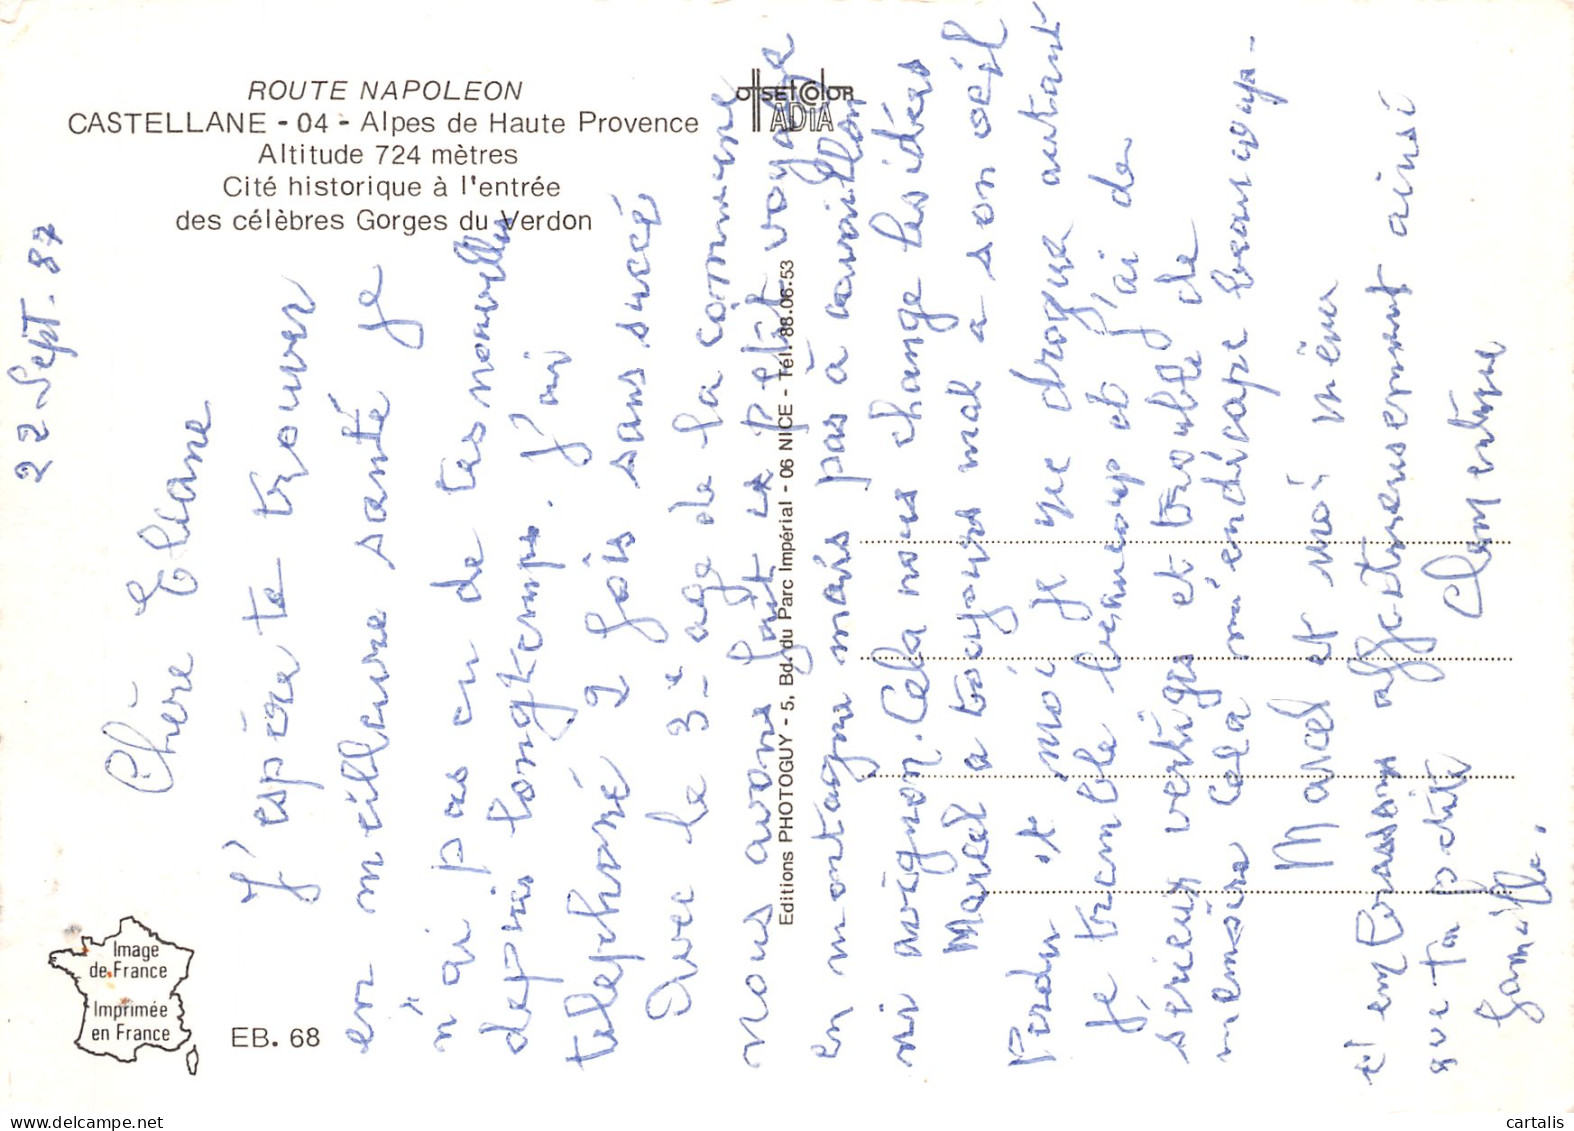 ROUTE NAPOLEON
CASTELLANE - 04 - Alpes de Haute Provence
Altitude 724 mètres
Cité historique à l'entrée
des célèbres Gorges du Verdon
OFFSETCOLOR
ADIA
Editions PHOTOGUY - 5, Bd. du Parc Impérial - 06 NICE - Tél. 88.06.53
Image
de France
Imprimée
en France
EB. 68
22 Sept. 87
Chère Eliane
J'espère te trouver
en meilleure santé je
n'ai pas eu de tes nouvelles
depuis longtemps. J'ai
téléphoné 2 fois sans succé
Avec le 3e age de la commune
nous avons fait ce petit voyage
en montagne mais pas à
ni avignon. Cela nous change les idées
Marcel a toujours mal a son oeil
et moi je me drogue autant
Je tremble beaucoup et j'ai de
sérieux vertiges et trouble de
mémoire cela m'endécape beaucoup-
Marcel et moi même
t'embrassons affectueusement ainsi
que ta petite Clementine
famille.
cartalis
www.delcampe.net